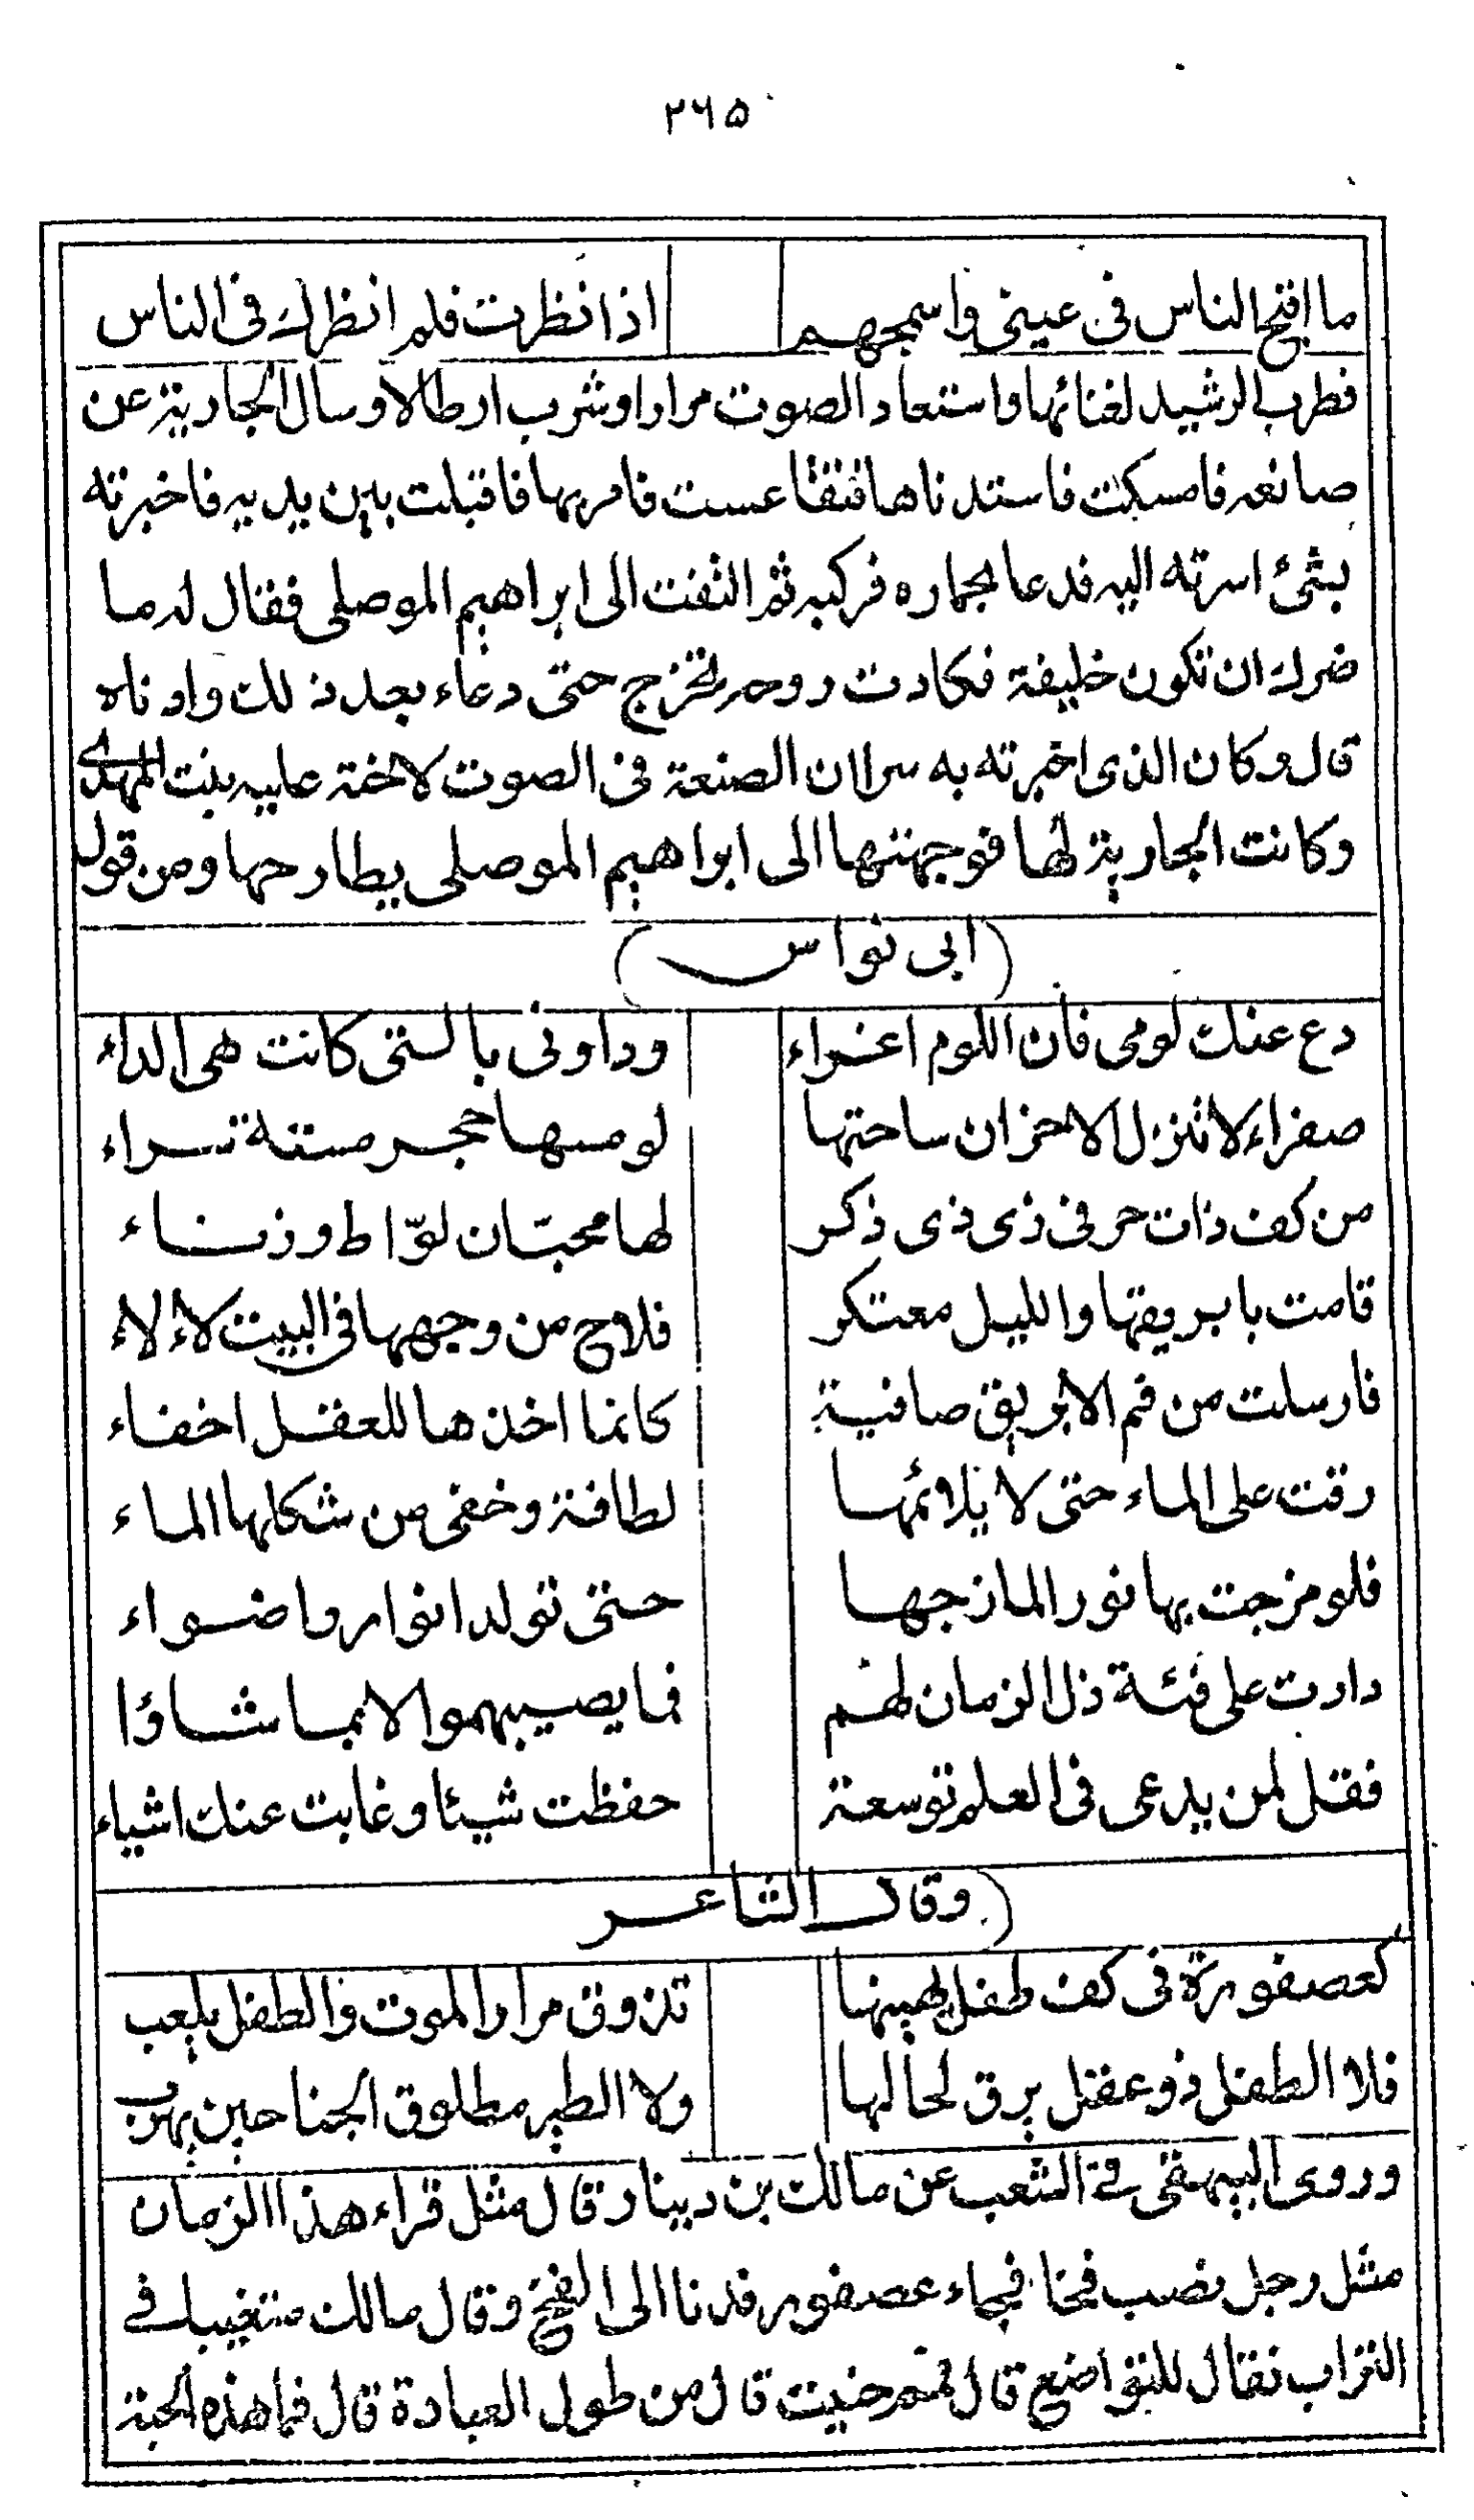 ۲۶۵
ما اقبح الناس فى عينى واسمجهم اذا نظرت فلم انظرك فى الناس
فطرب الرشيد لغنائها واستعاد الصوت مرارا وشرب ارطالا وسال الجارية عن
صانعه فامسكت فاستدناها فتقاعست فامر بها فاقبلت بين يديه فاخبرته
بشئ اسرته اليه فدعا بحماره فركبه ثم التفت الى ابراهيم الموصلى فقال له ما
ضرك ان تكون خليفة فكادت روحه تخرج حتى دعاء بعد ذلك وادناه
قال وكان الذى اخبرته به سرا ان الصنعة فى الصوت لاخته عليه بنت المهدى
وكانت الجارية لها فوجهتها الى ابراهيم الموصلى يطارحها ومن قول
(ابى نواس)
دع عنك لومى فان اللوم اغراء وداونى بالتى كانت هى الداء
صفراء لا تنزل الاحزان ساحتها لو مسها حجر مسته سراء
من كف ذات حر فى ذى ذى ذكر لها محبّان لوّاط وزناء
قامت بابريقها والليل معتكر فلاح من وجهها فى البيت لاء لاء
فارسلت من فم الابريق صافية كانما اخذها للعقل اخفاء
رقت على الماء حتى لا يلائمها لطافة وخفى من شكلها الماء
فلو مزجت بها نورا لمازجها حتى تولد انوار واضواء
دارت على فئة ذل الزمان لهم فما يصيبهموا الا بما شاؤا
فقل لمن يدعى فى العلم توسعة حفظت شيئا وغابت عنك اشياء
(وقال الشاعر
كعصفورة فى كف طفل يهينها تذوق مرار الموت والطفل يلعب
فلا الطفل ذو عقل يرق لحالها ولا الطير مطلوق الجناحين يهرب
وروى البيهقى فى الشعب عن مالك بن دينار قال مثل قراء هذا الزمان
مثل رجل نصب فخا فجاء عصفور فدنا الى الفخ وقال مالك متغيبا فى
التراب نقال للتواضع قال فمم حنيت قال من طول العبادة قال فما هذه الحبة